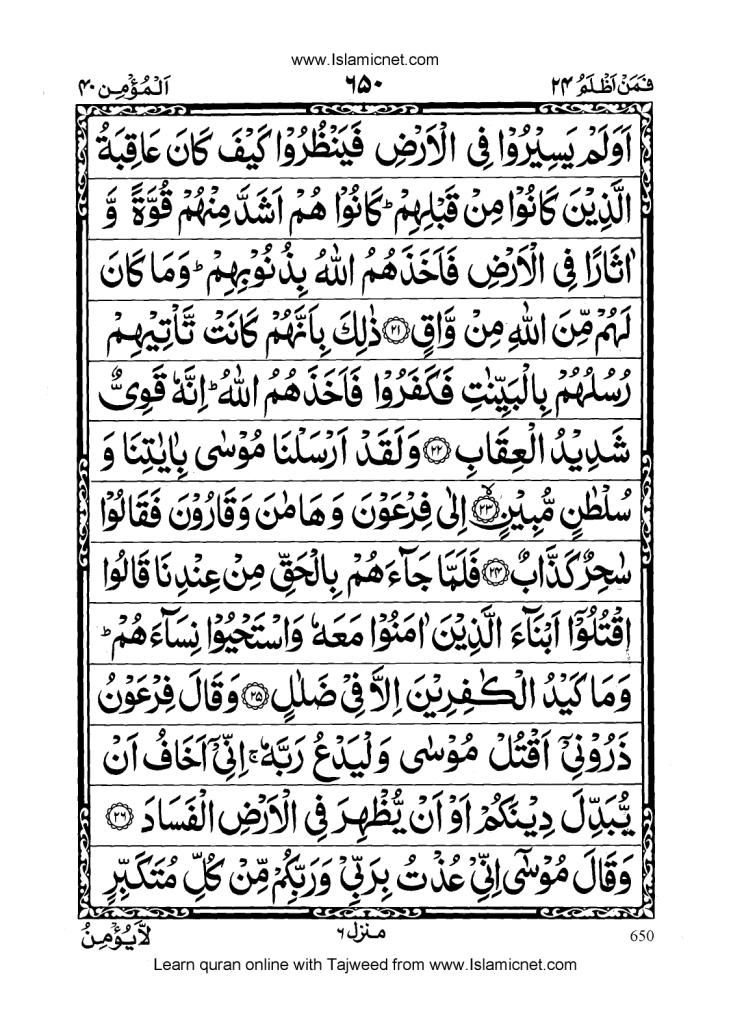 www.Islamicnet.com
اَلْمُؤْمِن ۴۰ ۶۵۰ فَمَنْ اَظْلَمُ ۲۴
اَوَلَمْ يَسِيْرُوْا فِى الْاَرْضِ فَيَنْظُرُوْا كَيْفَ كَانَ عَاقِبَةُ
الَّذِيْنَ كَانُوْا مِنْ قَبْلِهِمْ ؕ كَانُوْا هُمْ اَشَدَّ مِنْهُمْ قُوَّةً وَّ
اٰثَارًا فِى الْاَرْضِ فَاَخَذَهُمُ اللّٰهُ بِذُنُوْبِهِمْ ؕ وَمَا كَانَ
لَهُمْ مِّنَ اللّٰهِ مِنْ وَّاقٍ ۲۱ ذٰلِكَ بِاَنَّهُمْ كَانَتْ تَّاْتِيْهِمْ
رُسُلُهُمْ بِالْبَيِّنٰتِ فَكَفَرُوْا فَاَخَذَهُمُ اللّٰهُ ؕ اِنَّهٗ قَوِىٌّ
شَدِيْدُ الْعِقَابِ ۲۲ وَلَقَدْ اَرْسَلْنَا مُوْسٰى بِاٰيٰتِنَا وَ
سُلْطٰنٍ مُّبِيْنٍ ۙ ۲۳ اِلٰى فِرْعَوْنَ وَهَامٰنَ وَقَارُوْنَ فَقَالُوْا
سٰحِرٌ كَذَّابٌ ۲۴ فَلَمَّا جَآءَهُمْ بِالْحَقِّ مِنْ عِنْدِنَا قَالُوا
اقْتُلُوْۤا اَبْنَآءَ الَّذِيْنَ اٰمَنُوْا مَعَهٗ وَاسْتَحْيُوْا نِسَآءَهُمْ ؕ
وَمَا كَيْدُ الْكٰفِرِيْنَ اِلَّا فِىْ ضَلٰلٍ ۲۵ وَقَالَ فِرْعَوْنُ
ذَرُوْنِىْۤ اَقْتُلْ مُوْسٰى وَلْيَدْعُ رَبَّهٗ ۚ اِنِّىْۤ اَخَافُ اَنْ
يُّبَدِّلَ دِيْنَكُمْ اَوْ اَنْ يُّظْهِرَ فِى الْاَرْضِ الْفَسَادَ ۲۶
وَقَالَ مُوْسٰۤى اِنِّىْ عُذْتُ بِرَبِّىْ وَرَبِّكُمْ مِّنْ كُلِّ مُتَكَبِّرٍ
لَّا يُؤْمِنُ منزل ۶ 650
Learn quran online with Tajweed from www.Islamicnet.com